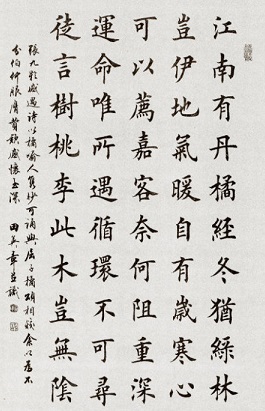 江南有丹橘經冬猶綠林
豈伊地氣暖自有歲寒心
可以薦嘉客奈何阻重深
運命唯所遇循環不可尋
徒言樹桃李此木豈無陰
張九齡感遇詩以橘喻人妙可誦與屈子橘頌相較余以為不
分伯仲服膺贊歎感懷至深 田英章並識